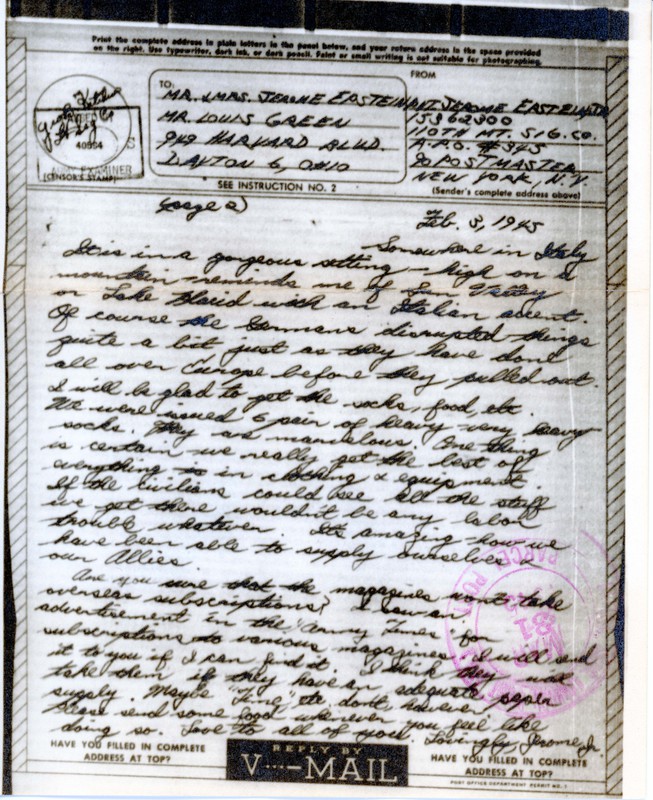 Print the complete address in plain letters in the panel below, and your return address in the space provided
on the right. Use typewriter, dark ink, or dark pencil. Faint or small writing is not suitable for photographing.
TO:
MR. & MRS. JEROME EPSTEIN
MR. LOUIS GREEN
949 HARVARD BLVD.
DAYTON 6, OHIO
FROM
PVT. JEROME EPSTEIN, JR.
15362300
110TH MT. SIG. CO.
A.P.O. #345
% POSTMASTER
NEW YORK, N.Y.
(Sender's complete address above)
40564
EXAMINER
(CENSOR'S STAMP)
SEE INSTRUCTION NO. 2
(page 2)
Feb. 3, 1945
Somewhere in Italy
It is in a gorgeous setting — high on a
mountain — reminds me of Sun Valley
or Lake Placid with an Italian accent.
Of course the Germans disrupted things
quite a bit just as they have done
all over Europe before they pulled out.
I will be glad to get the socks, food, etc.
We were issued 6 pair of heavy very heavy
socks. They are marvelous. One thing
is certain we really get the best of
everything in clothing & equipment.
If the civilians could see all the stuff
we get there wouldn't be any labor
trouble whatever. It's amazing how we
have been able to supply ourselves &
our Allies.
Are you sure that the magazines won't take
overseas subscriptions? I saw an
advertisement in the "Army Times" for
subscriptions to various magazines. I will send
it to you if I can find it. I think they will
take them if they have an adequate paper
supply. Maybe "Time," etc. don't, however.
Please send some food whenever you feel like
doing so. Love to all of you. Lovingly, Jerome Jr.
PARCEL POST
31
HAVE YOU FILLED IN COMPLETE
ADDRESS AT TOP?
REPLY BY
V···—MAIL
HAVE YOU FILLED IN COMPLETE
ADDRESS AT TOP?
POST OFFICE DEPARTMENT PERMIT NO. 1